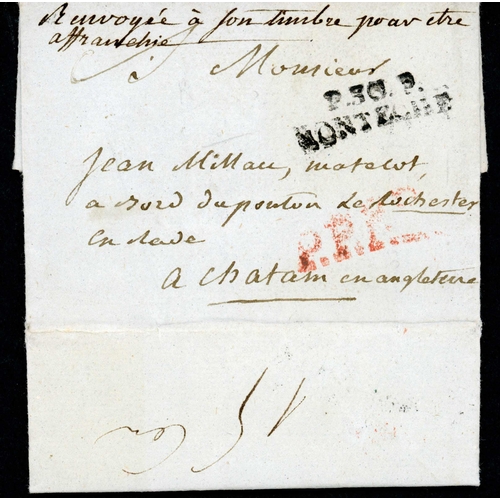 Renvoyée à son timbre pour etre
affranchie
à Monsieur
P.30.P.
MONTECH
Jean Millau, matelot,
a Bord du ponton le Rochester
En Rade
a Chatam en angleterre
P.P.